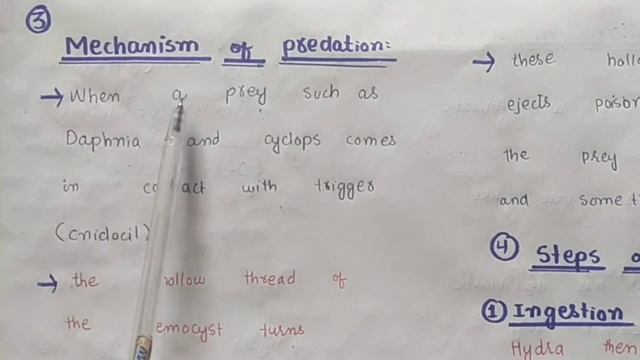 ③
Mechanism of predation:
→ When a prey such as
Daphnia and cyclops comes
in with trigger
(cnidocil)
→ the hollow thread of
the turns
→ these
ejects
the prey
and some
④ Steps
① Ingestion
Hydra then